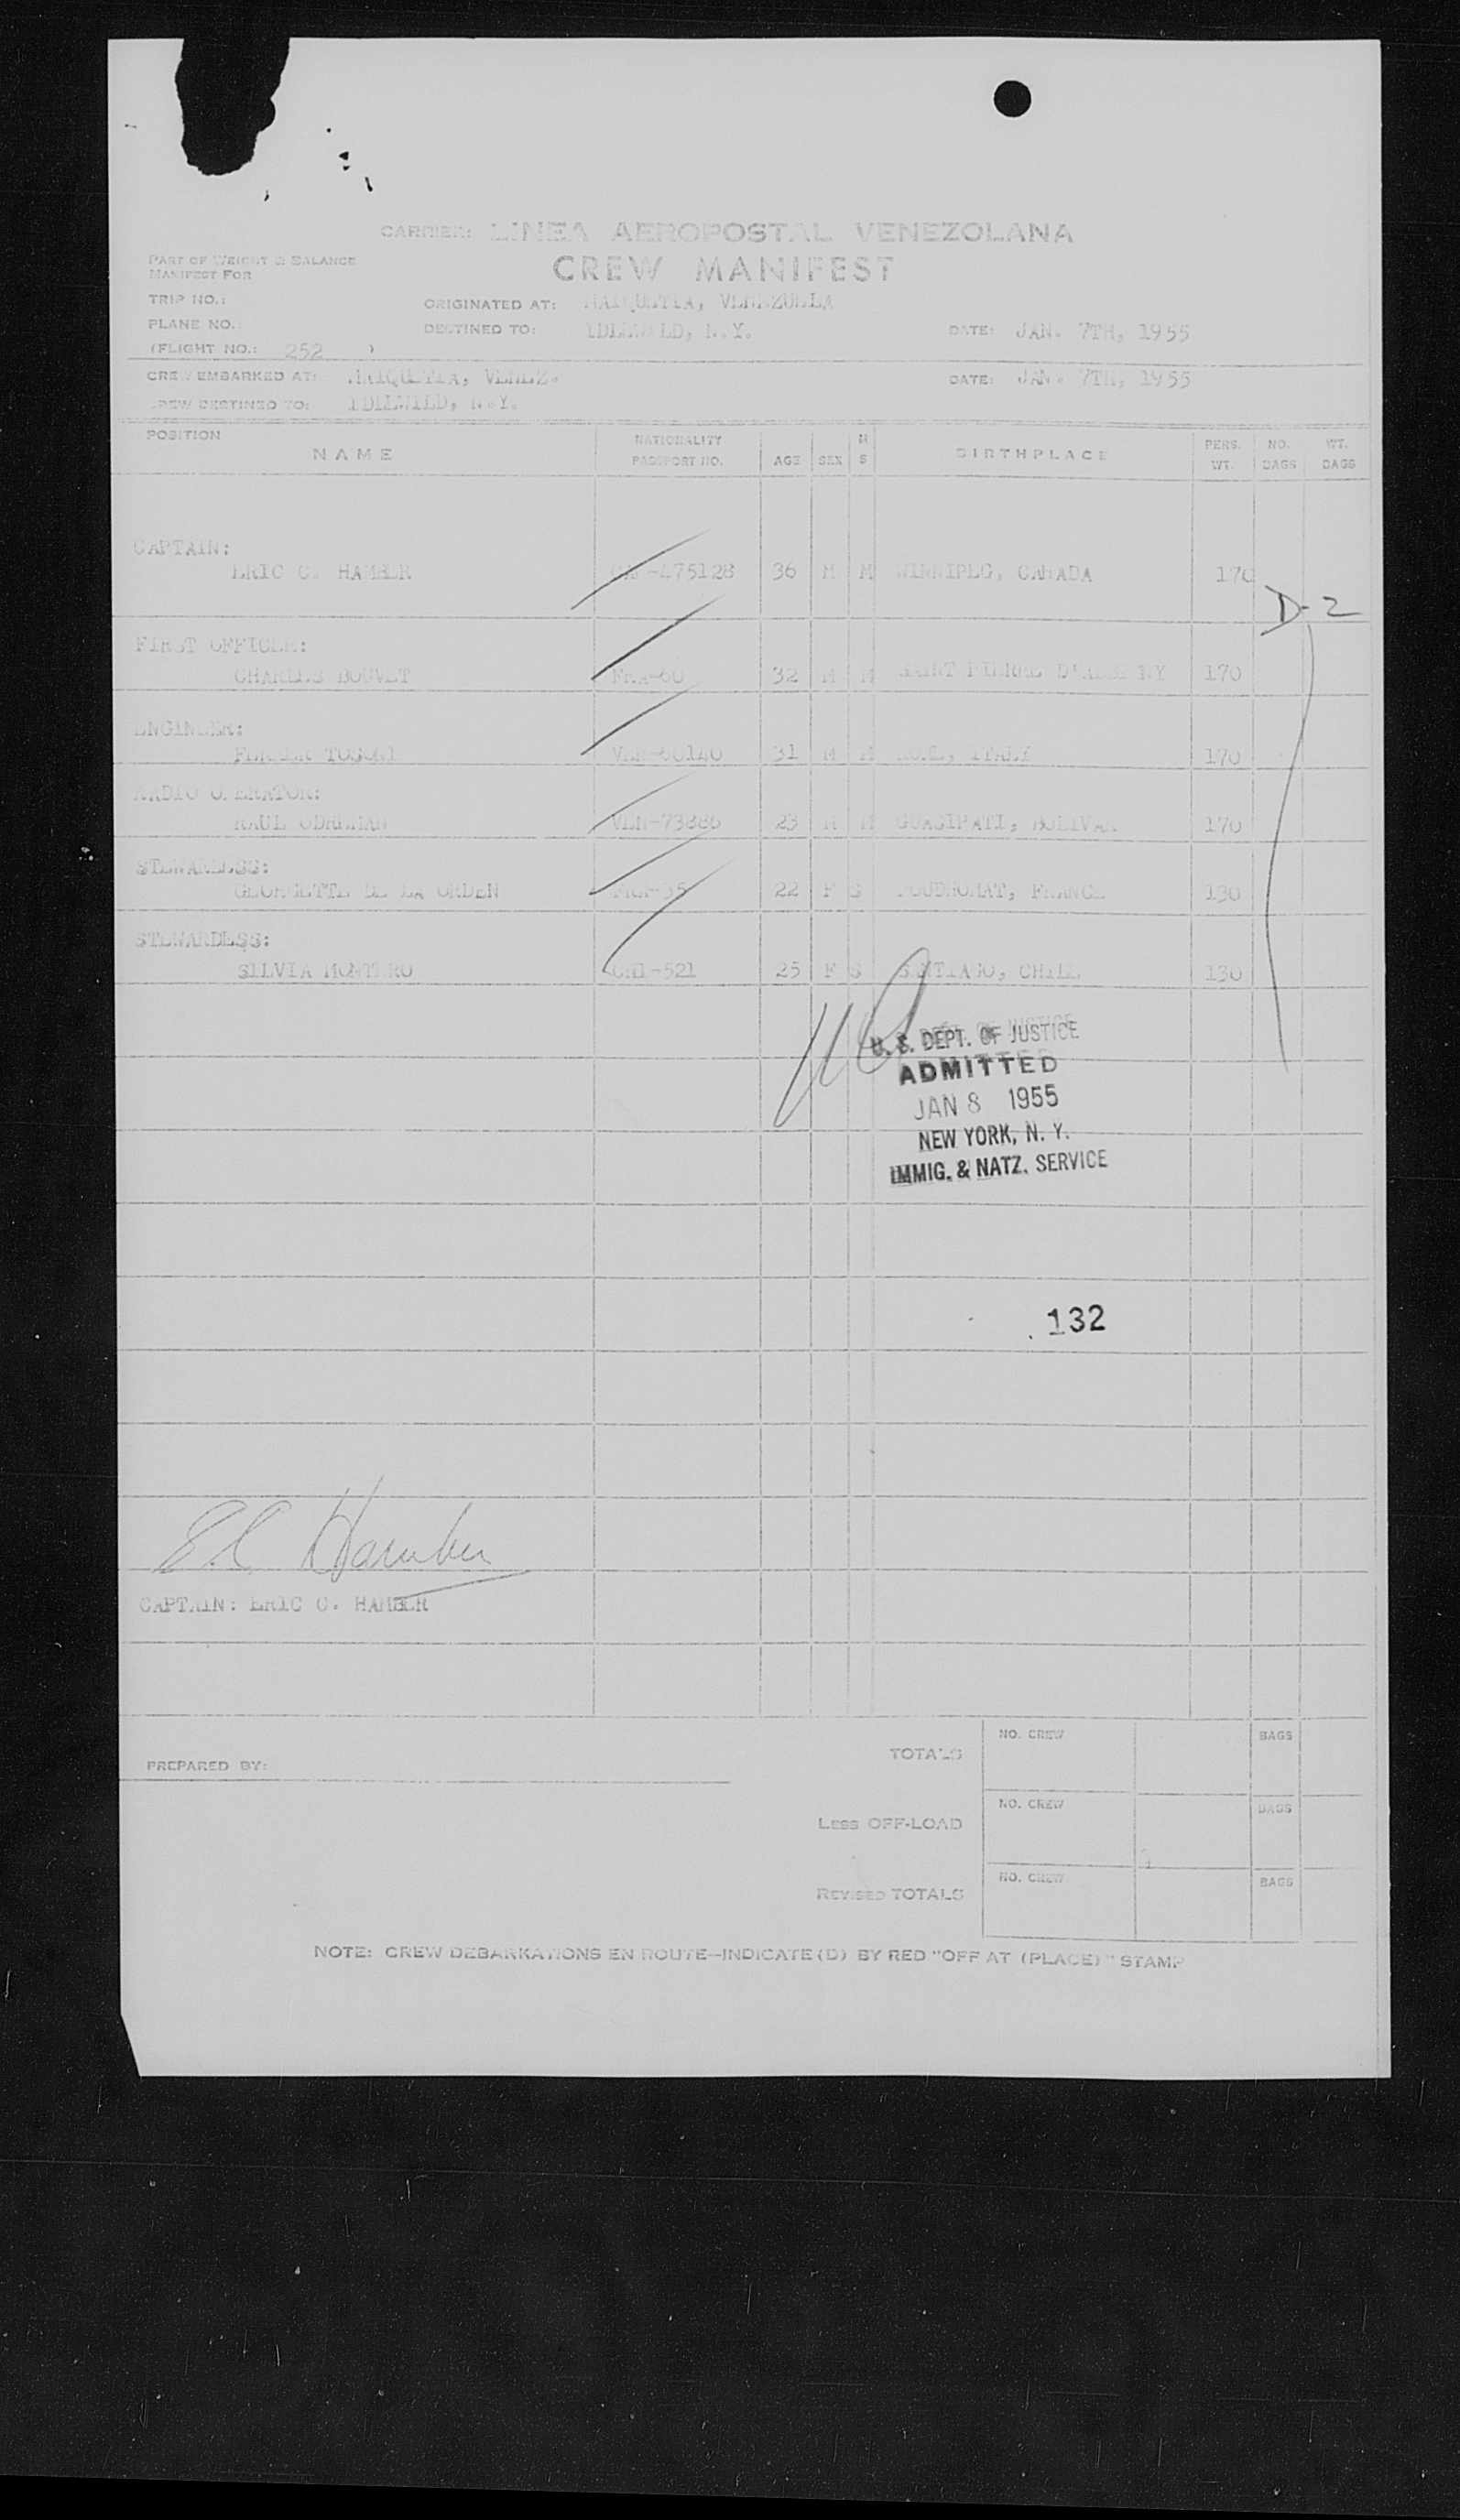 CARRIER: LINEA AEROPOSTAL VENEZOLANA
PART OF WEIGHT & BALANCE
MANIFEST FOR
CREW MANIFEST
TRIP NO.:
ORIGINATED AT: MAIQUETIA, VENEZUELA
PLANE NO.:
DESTINED TO: IDLEWILD, N.Y.
DATE: JAN. 7TH, 1955
(FLIGHT NO.: 252 )
CREW EMBARKED AT: MAIQUETIA, VENEZ.
DATE: JAN. 7TH, 1955
CREW DESTINED TO: IDLEWILD, N.Y.
POSITION NAME NATIONALITY PASSPORT NO. AGE SEX M S BIRTHPLACE PERS. WT. NO. BAGS WT. BAGS
CAPTAIN:
ERIC C. HAMBER -475128 36 M M WINNIPEG, CANADA 170
D-2
FIRST OFFICER:
CHARLES BOUVET FRA-60 32 M M SAINT PIERRE 170
ENGINEER:
TOSONI 31 M M ROME, ITALY 170
RADIO OPERATOR:
RAUL ODREMAN VEN-73886 23 M GUACIPATI, BOLIVAR 170
STEWARDESS:
GEORGETTE DE LA ORDEN 22 F S FRANCE 130
STEWARDESS:
SILVIA MONTERO CHI-521 25 F S SANTIAGO, CHILE 130
U. S. DEPT. OF JUSTICE
ADMITTED
JAN 8 1955
NEW YORK, N. Y.
IMMIG. & NATZ. SERVICE
132
E.C. Hamber
CAPTAIN: ERIC C. HAMBER
PREPARED BY:
TOTALS NO. CREW BAGS
Less OFF-LOAD NO. CREW BAGS
REVISED TOTALS NO. CREW BAGS
NOTE: CREW DEBARKATIONS EN ROUTE—INDICATE (D) BY RED "OFF AT (PLACE)" STAMP